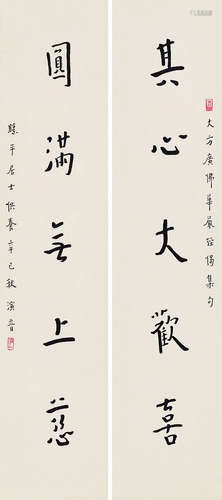 大方廣佛華嚴經偈集句
其心大歡喜
圓滿無上慈
勝平居士供養辛巳秋演音